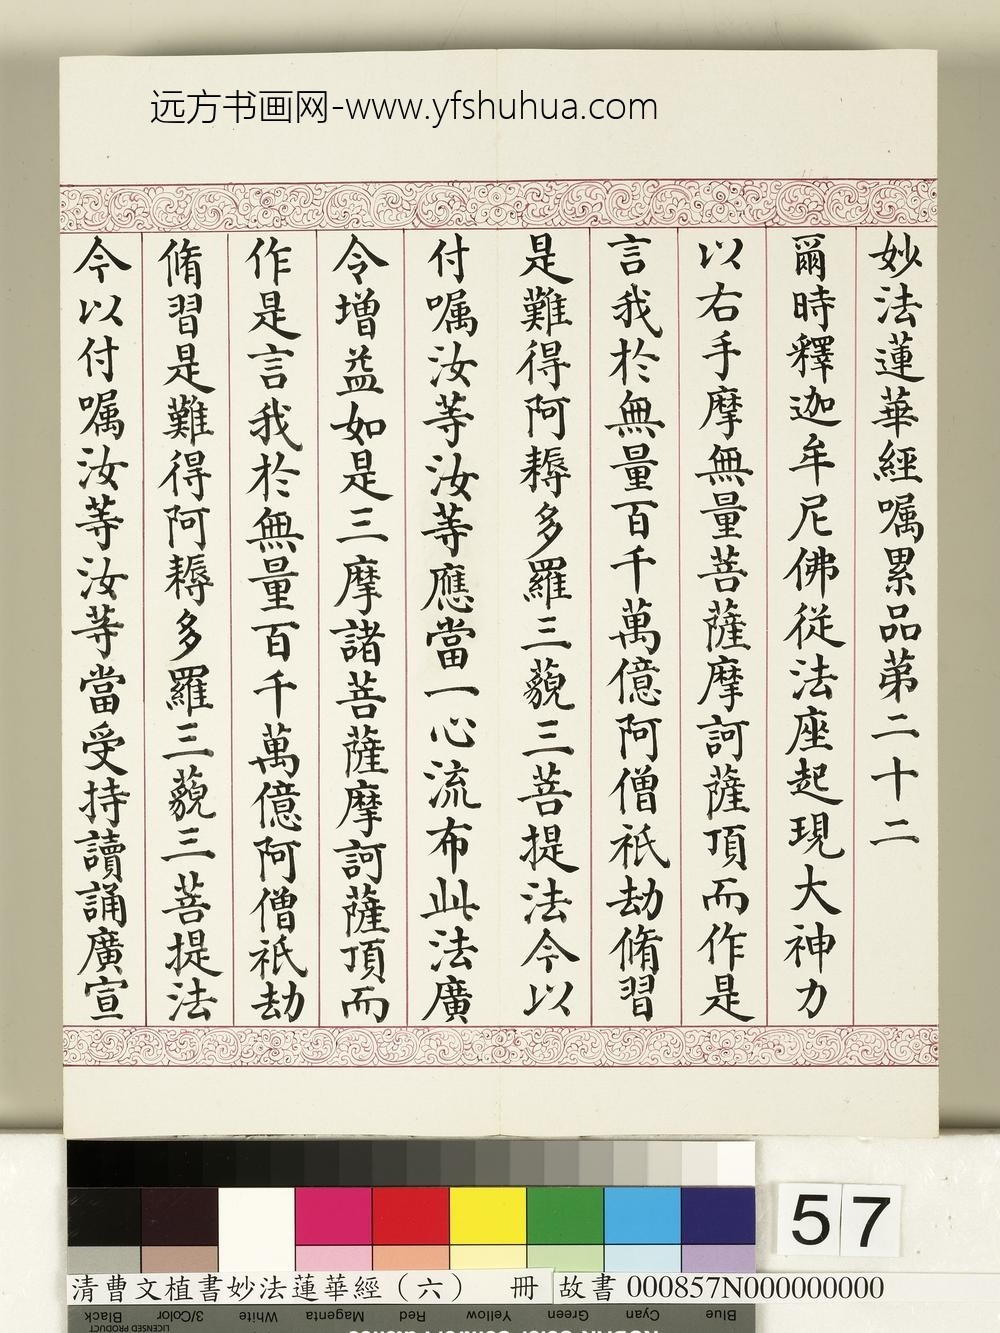 远方书画网-www.yfshuhua.com
妙法蓮華經嘱累品苐二十二
爾時釋迦牟尼佛従法座起現大神力
以右手摩無量菩薩摩訶薩頂而作是
言我於無量百千萬億阿僧祇劫脩習
是難得阿耨多羅三藐三菩提法今以
付嘱汝等汝等應當一心流布此法廣
令增益如是三摩諸菩薩摩訶薩頂而
作是言我於無量百千萬億阿僧祇劫
脩習是難得阿耨多羅三藐三菩提法
今以付嘱汝等汝等當受持讀誦廣宣
57
清曹文植書妙法蓮華經（六） 冊 故書 000857N000000000
Blue Cyan Green Yellow Red Magenta White 3/Color Black
LICENSED PRODUCT